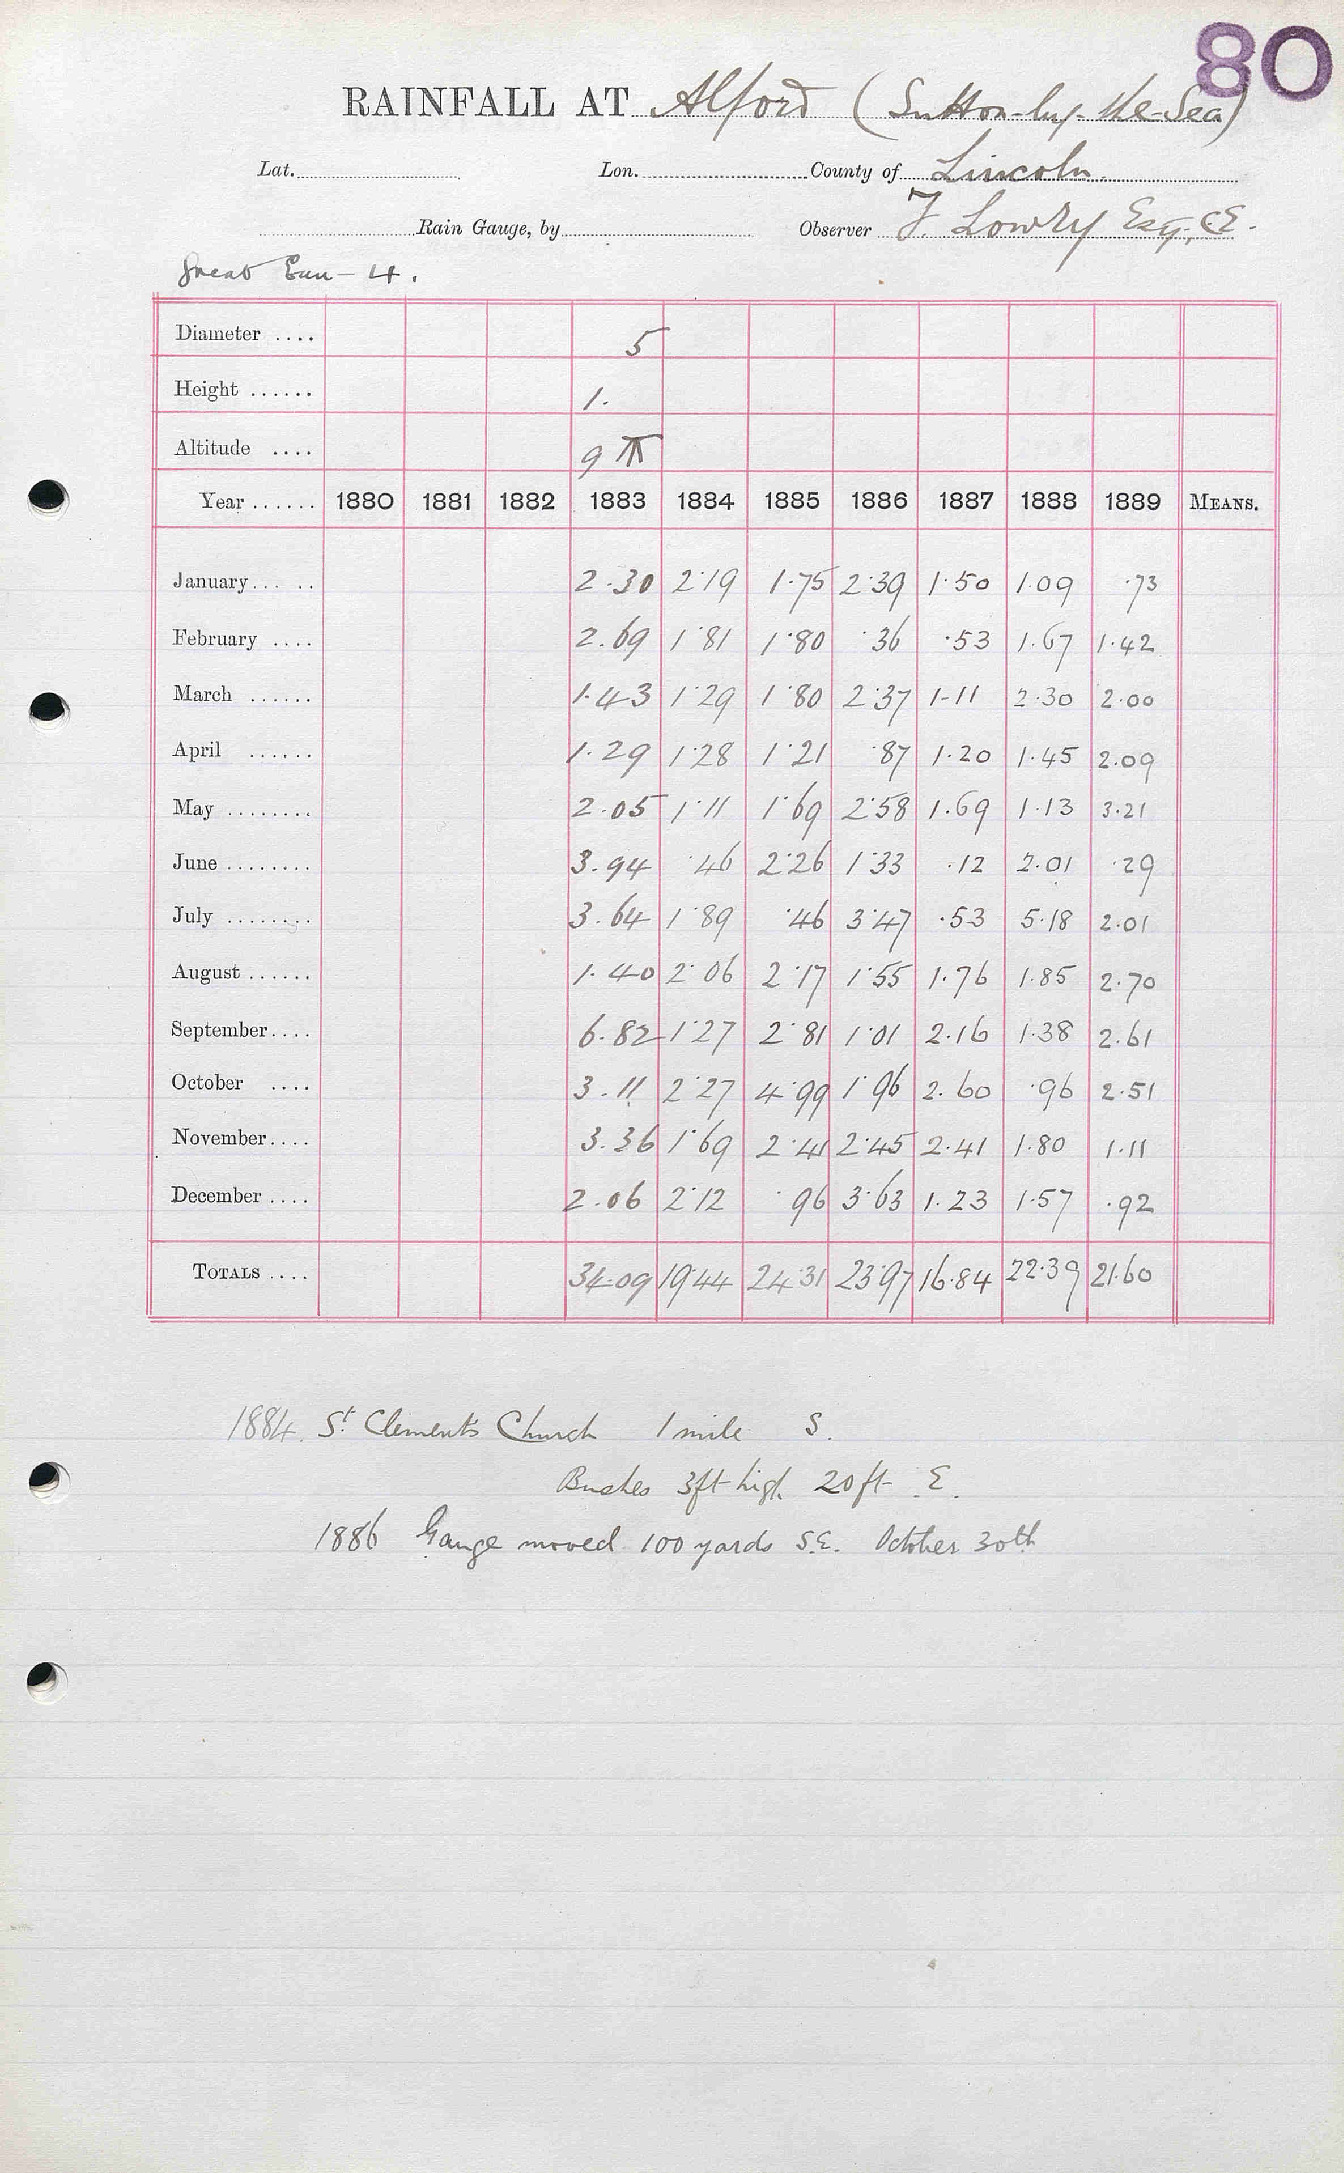 80
RAINFALL AT Alford (Sutton-by-the-Sea)
Lat. Lon. County of Lincoln
Rain Gauge, by Observer F. Lowry Esq, C.E.
Great Eau - 4.
Diameter .... 5
Height ...... 1.
Altitude .... 9
Year ...... 1880 1881 1882 1883 1884 1885 1886 1887 1888 1889 MEANS.
January... .. 2.30 2.19 1.75 2.39 1.50 1.09 .73
February .... 2.69 1.81 1.80 .36 .53 1.67 1.42
March ...... 1.43 1.29 1.80 2.37 1.11 2.30 2.00
April ...... 1.29 1.28 1.21 .87 1.20 1.45 2.09
May ........ 2.05 1.11 1.69 2.58 1.69 1.13 3.21
June ........ 3.94 .46 2.26 1.33 .12 2.01 .29
July ........ 3.64 1.89 .46 3.47 .53 5.18 2.01
August ...... 1.40 2.06 2.17 1.55 1.76 1.85 2.70
September.... 6.82 1.27 2.81 1.01 2.16 1.38 2.61
October .... 3.11 2.27 4.99 1.96 2.60 .96 2.51
November.... 3.36 1.69 2.41 2.45 2.41 1.80 1.11
December .... 2.06 2.12 .96 3.63 1.23 1.57 .92
TOTALS .... 34.09 19.44 24.31 23.97 16.84 22.39 21.60
1884. St. Clement's Church 1 mile S.
Bushes 3ft high 20ft E.
1886 Gauge moved 100 yards S.E. October 30th